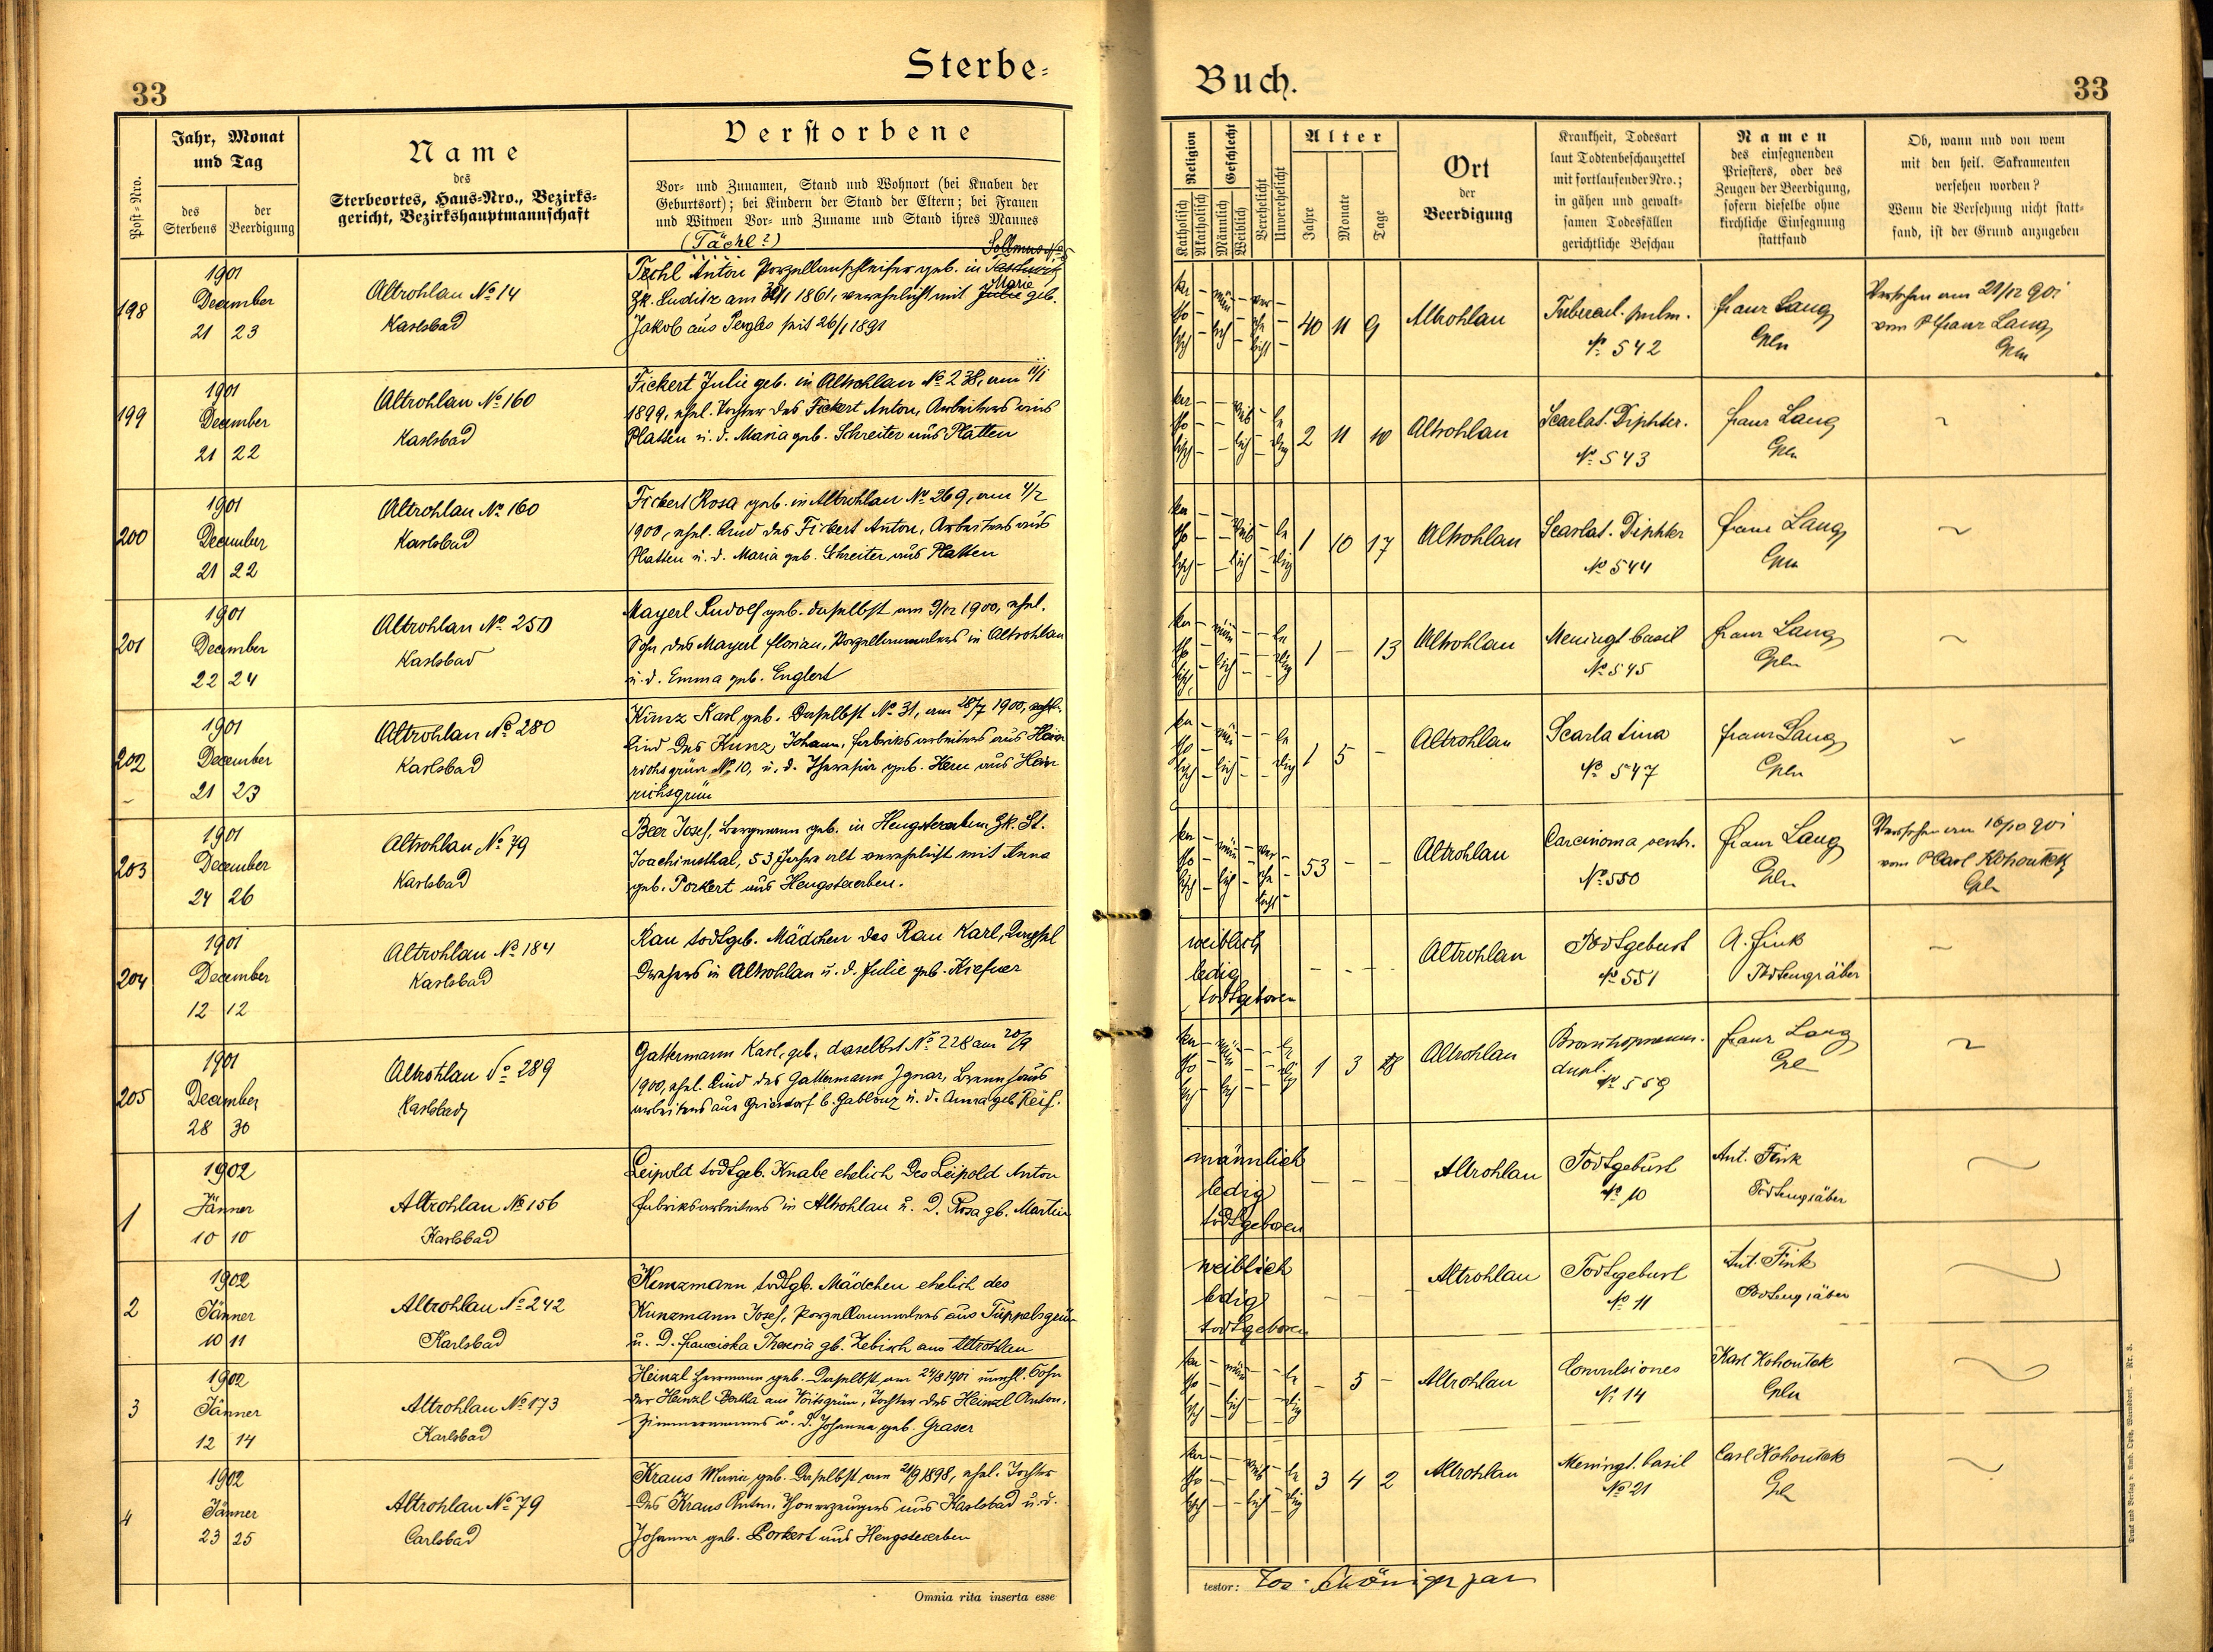 Sterbe-
Buch.
33
33
Post-Nro.
Jahr, Monat
und Tag
des
Sterbens
der
Beerdigung
Name
des
Sterbeortes, Haus-Nro., Bezirks-
gericht, Bezirkshauptmannschaft
Verstorbene
Vor- und Zunamen, Stand und Wohnort (bei Knaben der
Geburtsort); bei Kindern der Stand der Eltern; bei Frauen
und Witwen Vor- und Zuname und Stand ihres Mannes
Religion
Katholisch
Akatholisch
Geschlecht
Männlich
Weiblich
Verehelicht
Unverehelicht
Alter
Jahre
Monate
Tage
Ort
der
Beerdigung
Krankheit, Todesart
laut Todtenbeschauzettel
mit fortlaufender Nro.;
in gähen und gewalt-
samen Todesfällen
gerichtliche Beschau
Namen
des einsegnenden
Priesters, oder des
Zeugen der Beerdigung,
sofern dieselbe ohne
kirchliche Einsegnung
stattfand
Ob, wann und von wem
mit den heil. Sakramenten
versehen worden?
Wenn die Versehung nicht statt-
fand, ist der Grund anzugeben
198
1901
December
21 23
Altrohlau No 14
Karlsbad
(Tächl?)
Sollmus No
Techl Anton Porzellanschleifer geb. in
Marie
Bk. Luditz am 30/1 1861, verehelicht mit Julie geb.
Jakob aus Pergles seit 26/1 1891
katholisch männlich verehelicht
40 11 9
Altrohlau
Tubercul. pulm.
No 542
Franz Lang
Cpln
Versehen am 21/12 901
vom P Franz Lang
Cpln
199
1901
December
21 22
Altrohlau No 160
Karlsbad
Fickert Julie geb. in Altrohlau No 238, am 11/1
1899, ehel. Tochter des Fickert Anton, Arbeiters aus
Platten u. d. Maria geb. Schreiter aus Platten
katholisch weiblich ledig
2 11 10
Altrohlau
Scarlat. Diphter.
No 543
Franz Lang
Cpln
200
1901
December
21 22
Altrohlau No 160
Karlsbad
Fickert Rosa geb. in Altrohlau No 269, am 4/2
1900, ehel. Kind des Fickert Anton, Arbeiters aus
Platten u. d. Maria geb. Schreiter aus Platten
katholisch weiblich ledig
1 10 17
Altrohlau
Scarlat. Diphter
No 544
Franz Lang
Cpln
201
1901
December
22 24
Altrohlau No 250
Karlsbad
Mayerl Rudolf geb. daselbst am 9/12 1900, ehel.
Sohn des Mayerl Florian, Porzellanmalers in Altrohlau
u. d. Emma geb. Englert
katholisch männlich ledig
1 - 13
Altrohlau
Meningt basil
No 545
Franz Lang
Cpln
202
1901
December
21 23
Altrohlau No 280
Karlsbad
Kunz Karl, geb. Daselbst No 31, am 28/7 1900, ehel.
Kind des Kunz Johann, Fabriksarbeiters aus Hein
richsgrün No 10, u. d. Theresia geb. Kern aus Hein
richsgrün
katholisch männlich ledig
1 5 -
Altrohlau
Scarlatina
No 547
Franz Lang
Cpln
203
1901
December
24 26
Altrohlau No 79
Karlsbad
Beer Josef, Bergmann geb. in Hengstererben Bk. St.
Joachimsthal, 53 Jahre alt verehelicht mit Anna
geb. Porkert aus Hengstererben.
katholisch männlich verehelicht
53 - -
Altrohlau
Carcinoma ventr.
No 550
Franz Lang
Cpln
Versehen am 16/10 901
vom P Carl Kohoutek
Cpln
204
1901
December
12 12
Altrohlau No 184
Karlsbad
Rau todtgeb. Mädchen des Rau Karl,
Drehers in Altrohlau u. d. Julie geb. Kiefner
weiblich
ledig
todtgeboren
- - -
Altrohlau
Todtgeburt
No 551
A. Fink
Todtengräber
205
1901
December
28 30
Altrohlau No 289
Karlsbad
Gattermann Karl, geb. daselbst No 228 am 20/9
1900, ehel. Kind des Gattermann Ignaz, Brennhaus
arbeiters aus Griendorf b. Gablonz u. d. Anna geb Reif.
katholisch männlich ledig
1 3 8
Altrohlau
Bronchopneum.
dupl.
No 559
Franz Lang
Cpl
1
1902
Jänner
10 10
Altrohlau No 156
Karlsbad
Leipold todtgeb. Knabe ehelich des Leipold Anton
Fabriksarbeiters in Altrohlau u. D. Rosa gb. Martin
männlich
ledig
todtgeboren
- - -
Altrohlau
Todtgeburt
No 10
Ant. Fink
Todtengräber
2
1902
Jänner
10 11
Altrohlau No 242
Karlsbad
Kunzmann todtgb. Mädchen ehelich des
Kunzmann Josef, Porzellanmalers aus Tüppelsgrün
u. D. Franciska Theresia gb. Zebisch aus Altrohlau
weiblich
ledig
todtgeboren
- - -
Altrohlau
Todtgeburt
No 11
Ant. Fink
Todtengräber
3
1902
Jänner
12 14
Altrohlau No 173
Karlsbad
Heinzl Herrmann geb. Daselbst am 24/8 1901 unehl. Sohn
der Heinzl Bertha aus Voitsgrün, Tochter des Heinzl Anton,
Zimmermannes u. d. Johanna geb. Graser
katholisch männlich ledig
- 5 -
Altrohlau
Convulsiones
No 14
Karl Kohoutek
Cpln
4
1902
Jänner
23 25
Altrohlau No 79
Carlsbad
Kraus Maria geb. Daselbst am 21/9 1898, ehel. Tochter
des Kraus Anton, aus Karlsbad u. d.
Johanna geb. Porkert aus Hengstererben
katholisch weiblich ledig
3 4 2
Altrohlau
Meningt. basil
No 21
Carl Kohoutek
Cpl
Omnia rita inserta esse
testor: Jos. Schöniger par